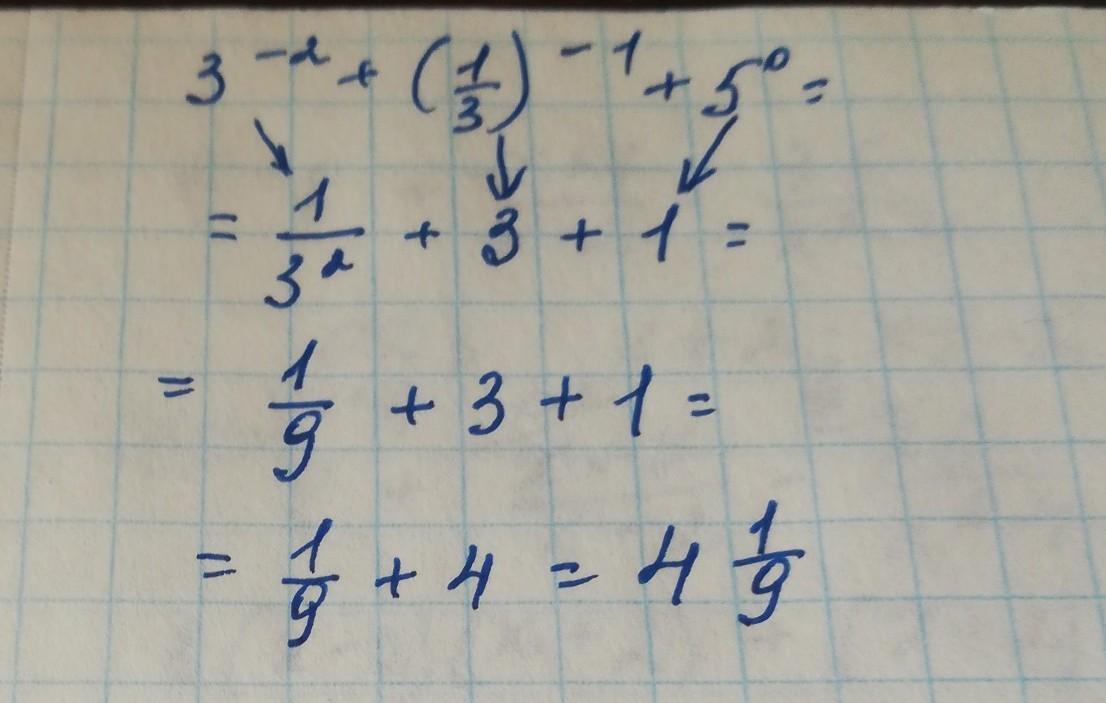 3⁻² + (1/3)⁻¹ + 5⁰ =
= 1/3² + 3 + 1 =
= 1/9 + 3 + 1 =
= 1/9 + 4 = 4 1/9